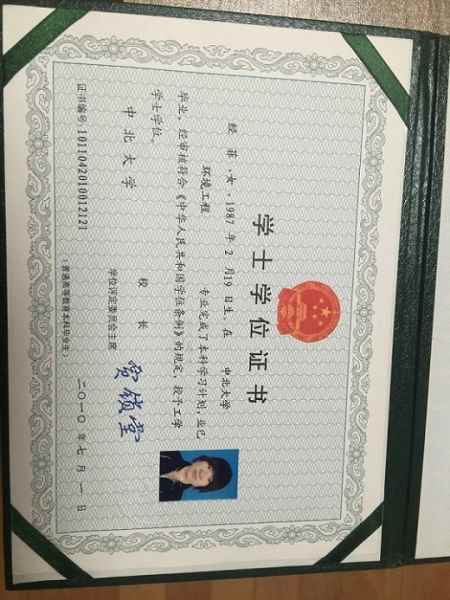 学士学位证书
经菲，女，1987年2月19日生。在 中北大学
环境工程 专业完成了本科学习计划，业已
毕业，经审核符合《中华人民共和国学位条例》的规定，授予工学
学士学位。
中北大学
校长
学位评定委员会主席
贺锁堂
证书编号:1011042010012121
二〇一〇年七月一日
(普通高等教育本科毕业生)